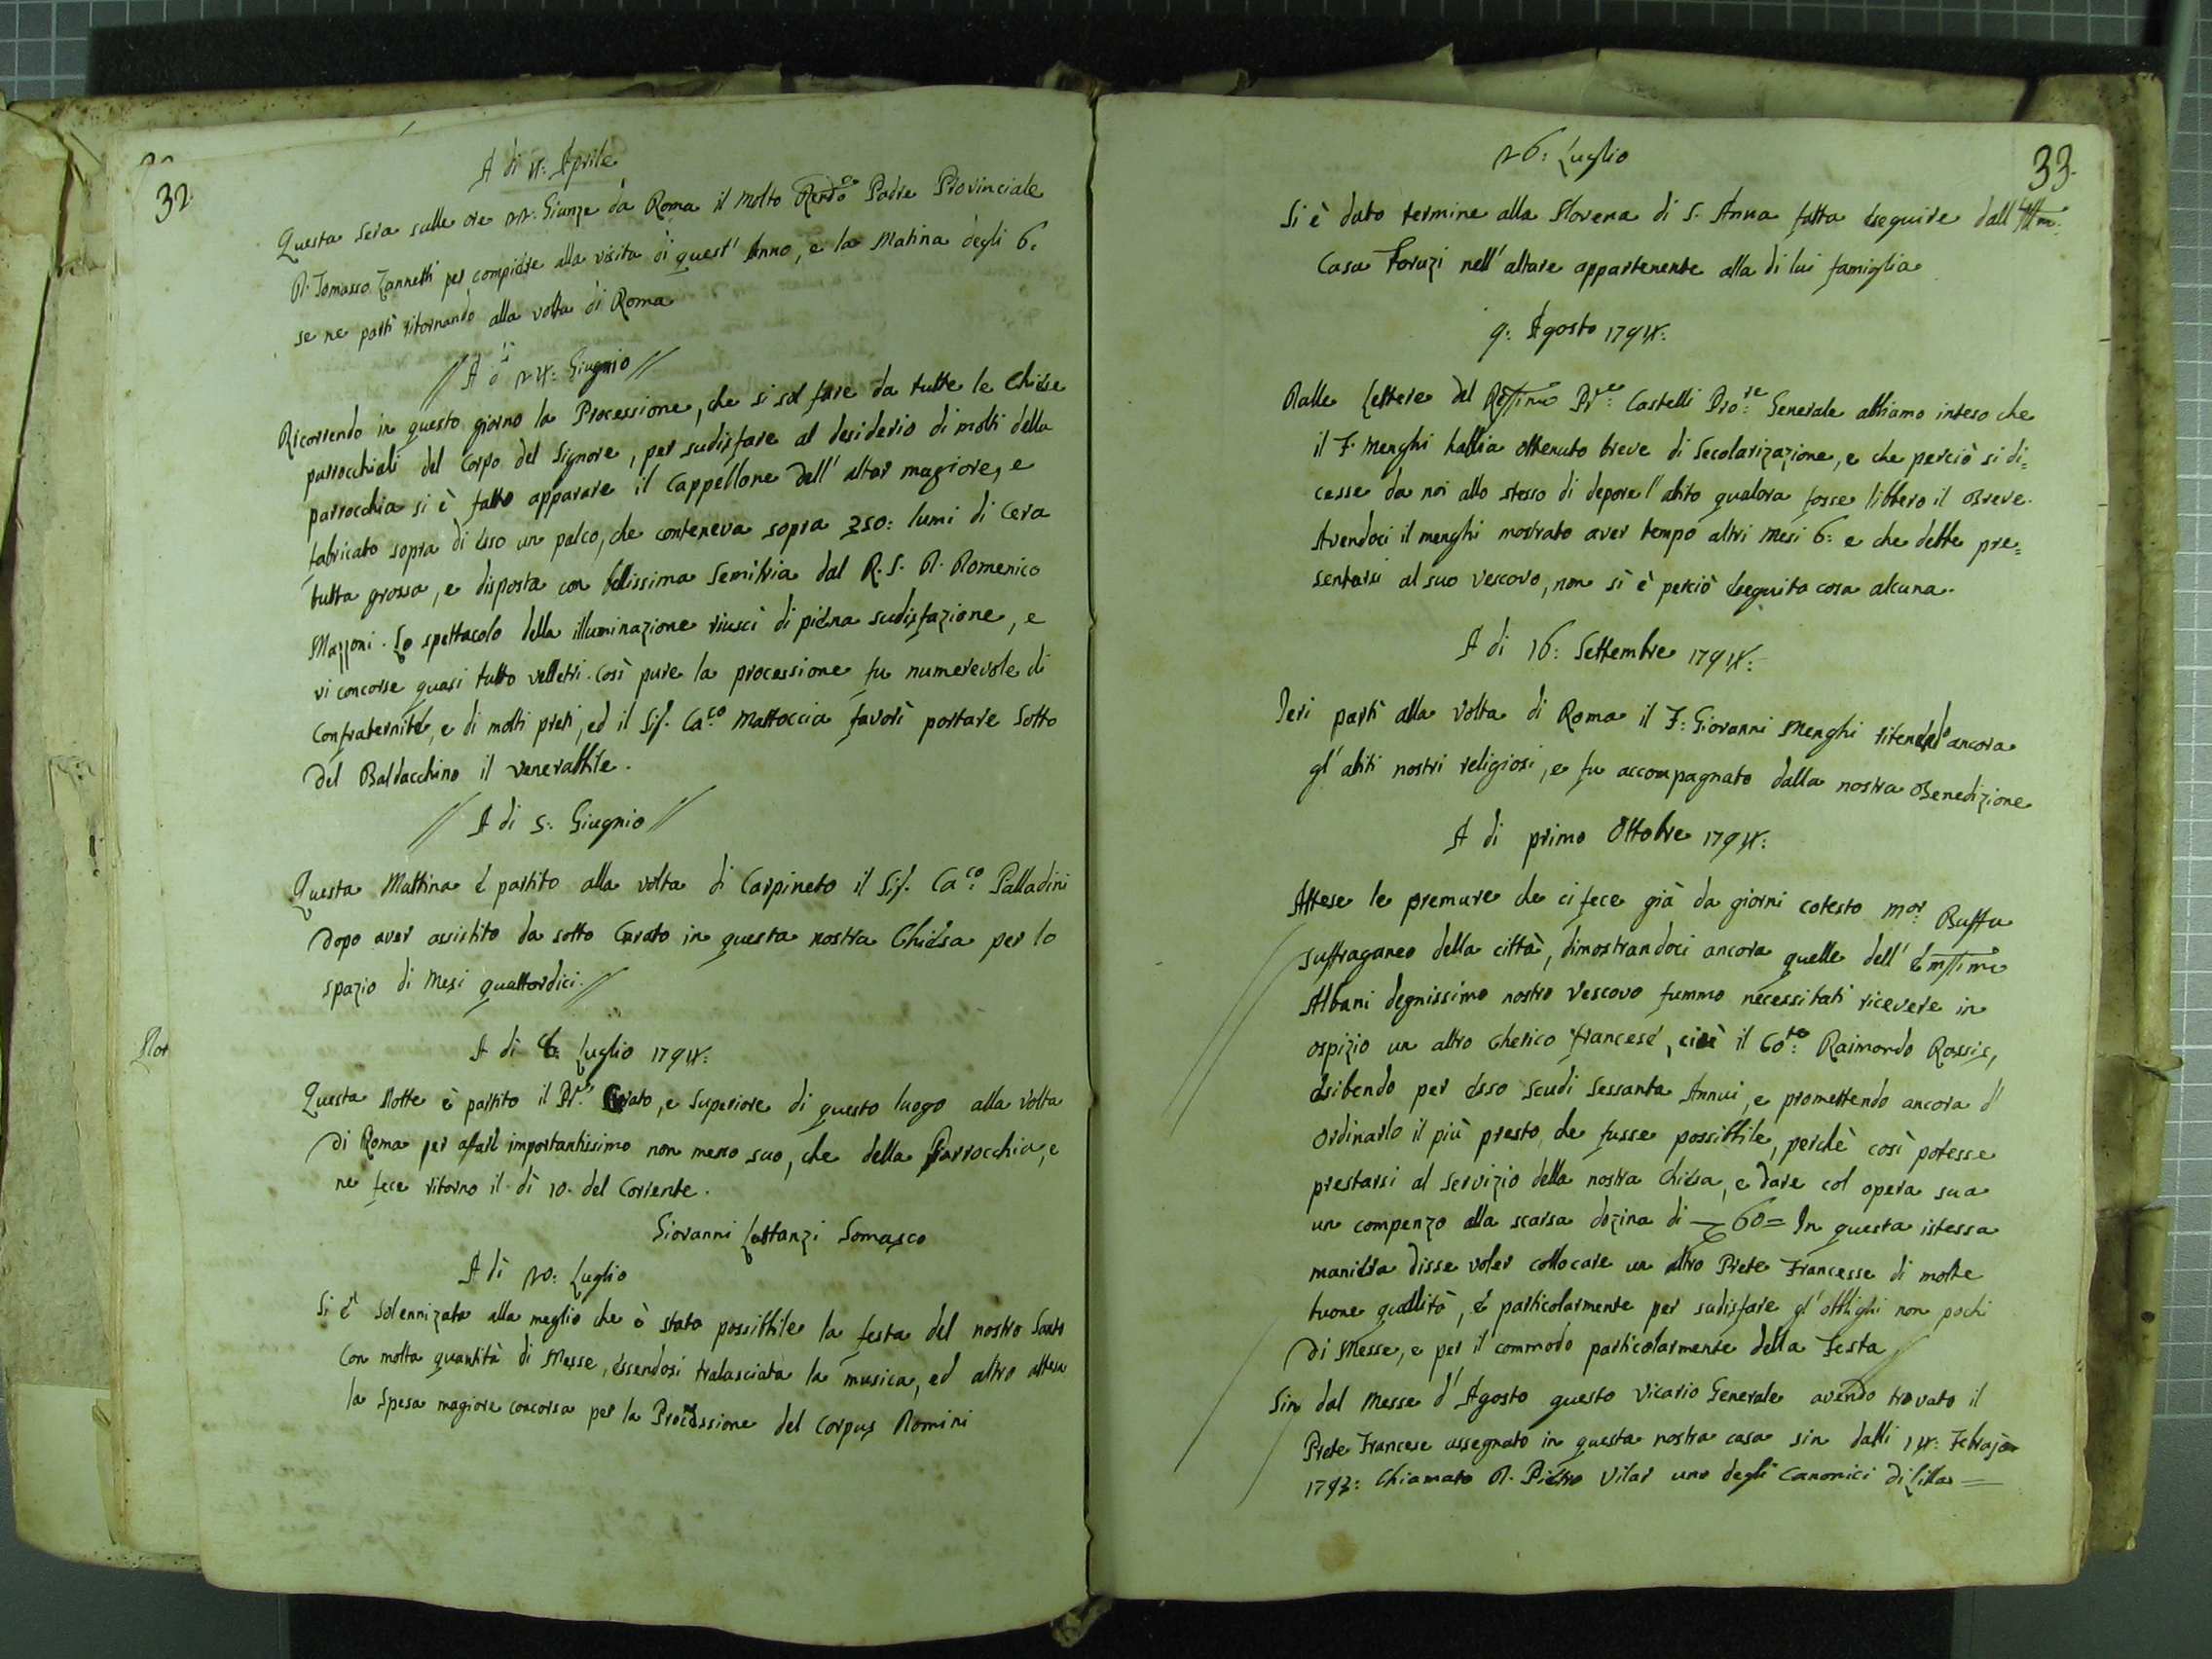 32.
A di 4: Aprile
Questa sera sulle ore 22: Giunze da Roma il Molto Rendo Padre Provinciale
D. Tomasso Zannetti per compiere alla visita di quest' Anno, e la Matina degli 6.
se ne partì ritornando alla volta di Roma
// A dì 24: Giugnio //
Ricorrendo in questo giorno la Processione, che si sol fare da tutte le Chiese
parrocchiali del Corpo del Signore, per sudisfare al desiderio di molti della
parrocchia si è fatto apparare il Cappellone dell' altar magiore, e
fabricato sopra di esso un palco, che conteneva sopra 350: lumi di Cera
tutta grossa, e disposta con bellissima Semitria dal R. S. D. Domenico
Mazzoni. Lo spettacolo della illuminazione riuscì di piena sudisfazione, e
vi concorse quasi tutto velletri. Così pure la processione fu numerevole di
Confraternite, e di molti preti, ed il Sig. Caco Mattoccia favorì portare sotto
del Baldacchino il venerabbile.
// A di 5: Giugnio //
Questa Mattina è partito alla volta di Carpineto il Sig. Caco: Palladini
dopo aver assistito da sotto Curato in questa nostra Chiesa per lo
spazio di Mesi quattordici. //
A di 8: Luglio 1794:
Questa Notte è partito il Pre: Curato, e Superiore di questo luogo alla volta
di Roma per afare importantissimo non meno suo, che della Parrocchia, e
ne fece ritorno il dì 10. del Corrente.
Giovanni Costanzi Somasco
A dì 20: Luglio
Si è solennizata alla meglio che è stato possibbile la festa del nostro Santo
Con molta quantità di Messe, essendosi tralasciata la musica, ed altro attesa
la Spesa magiore concorsa per la Processione del Corpus Domini
33.
26: Luglio
Si è dato termine alla Novena di S. Anna fatta eseguire dall' Illma:
Casa Toruzi nell' altare appartenente alla di lui famiglia
9: Agosto 1794:
Dalle Lettere del Ressimo Pre: Castelli Prore: Generale abbiamo inteso che
il F. Menghi habbia ottenuto breve di Secolarizazione, e che perciò si di=
cesse da noi allo stesso di depore l'abito qualora fosse libbero il Breve.
Avendoci il menghi mostrato aver tempo altri Mesi 6: e che debbe pre=
sentarsi al suo vescovo, non si è perciò eseguita cosa alcuna.
A di 16: Settembre 1794:
Ieri partì alla volta di Roma il F: Giovanni Menghi ritenendo ancora
gl' abiti nostri religiosi, e fu accompagnato dalla nostra Benedizione
A di primo Ottobre 1794:
Attese le premure che ci fece già da giorni cotesto Mor: Buffa
suffraganeo della città, dimostrandoci ancora quelle dell' Emssimo
Albani degnissimo nostro Vescovo fummo necessitati ricevere in
ospizio un altro Cherico francese, cioè il Coto: Raimondo Rossis,
esibendo per esso scudi sessanta Annui, e promettendo ancora d'
ordinarlo il più presto, che fusse possibbile, perchè così potesse
prestarsi al servizio della nostra Chiesa, e dare col opera sua
un compenzo alla scarsa dozina di 60= In questa istessa
maniera disse voler collocare un altro Prete Francesse di molte
buone quallità, e particolarmente per sudisfare gl' obblighi non pochi
di Messe, e per il commodo particolarmente della Festa
Sin dal Messe d' Agosto questo Vicario Generale avendo trovato il
Prete Francese assegnato in questa nostra casa sin dalli 14: Febrajo
1793: Chiamato D. Pietro Vilar uno degli Canonici di Lilla =